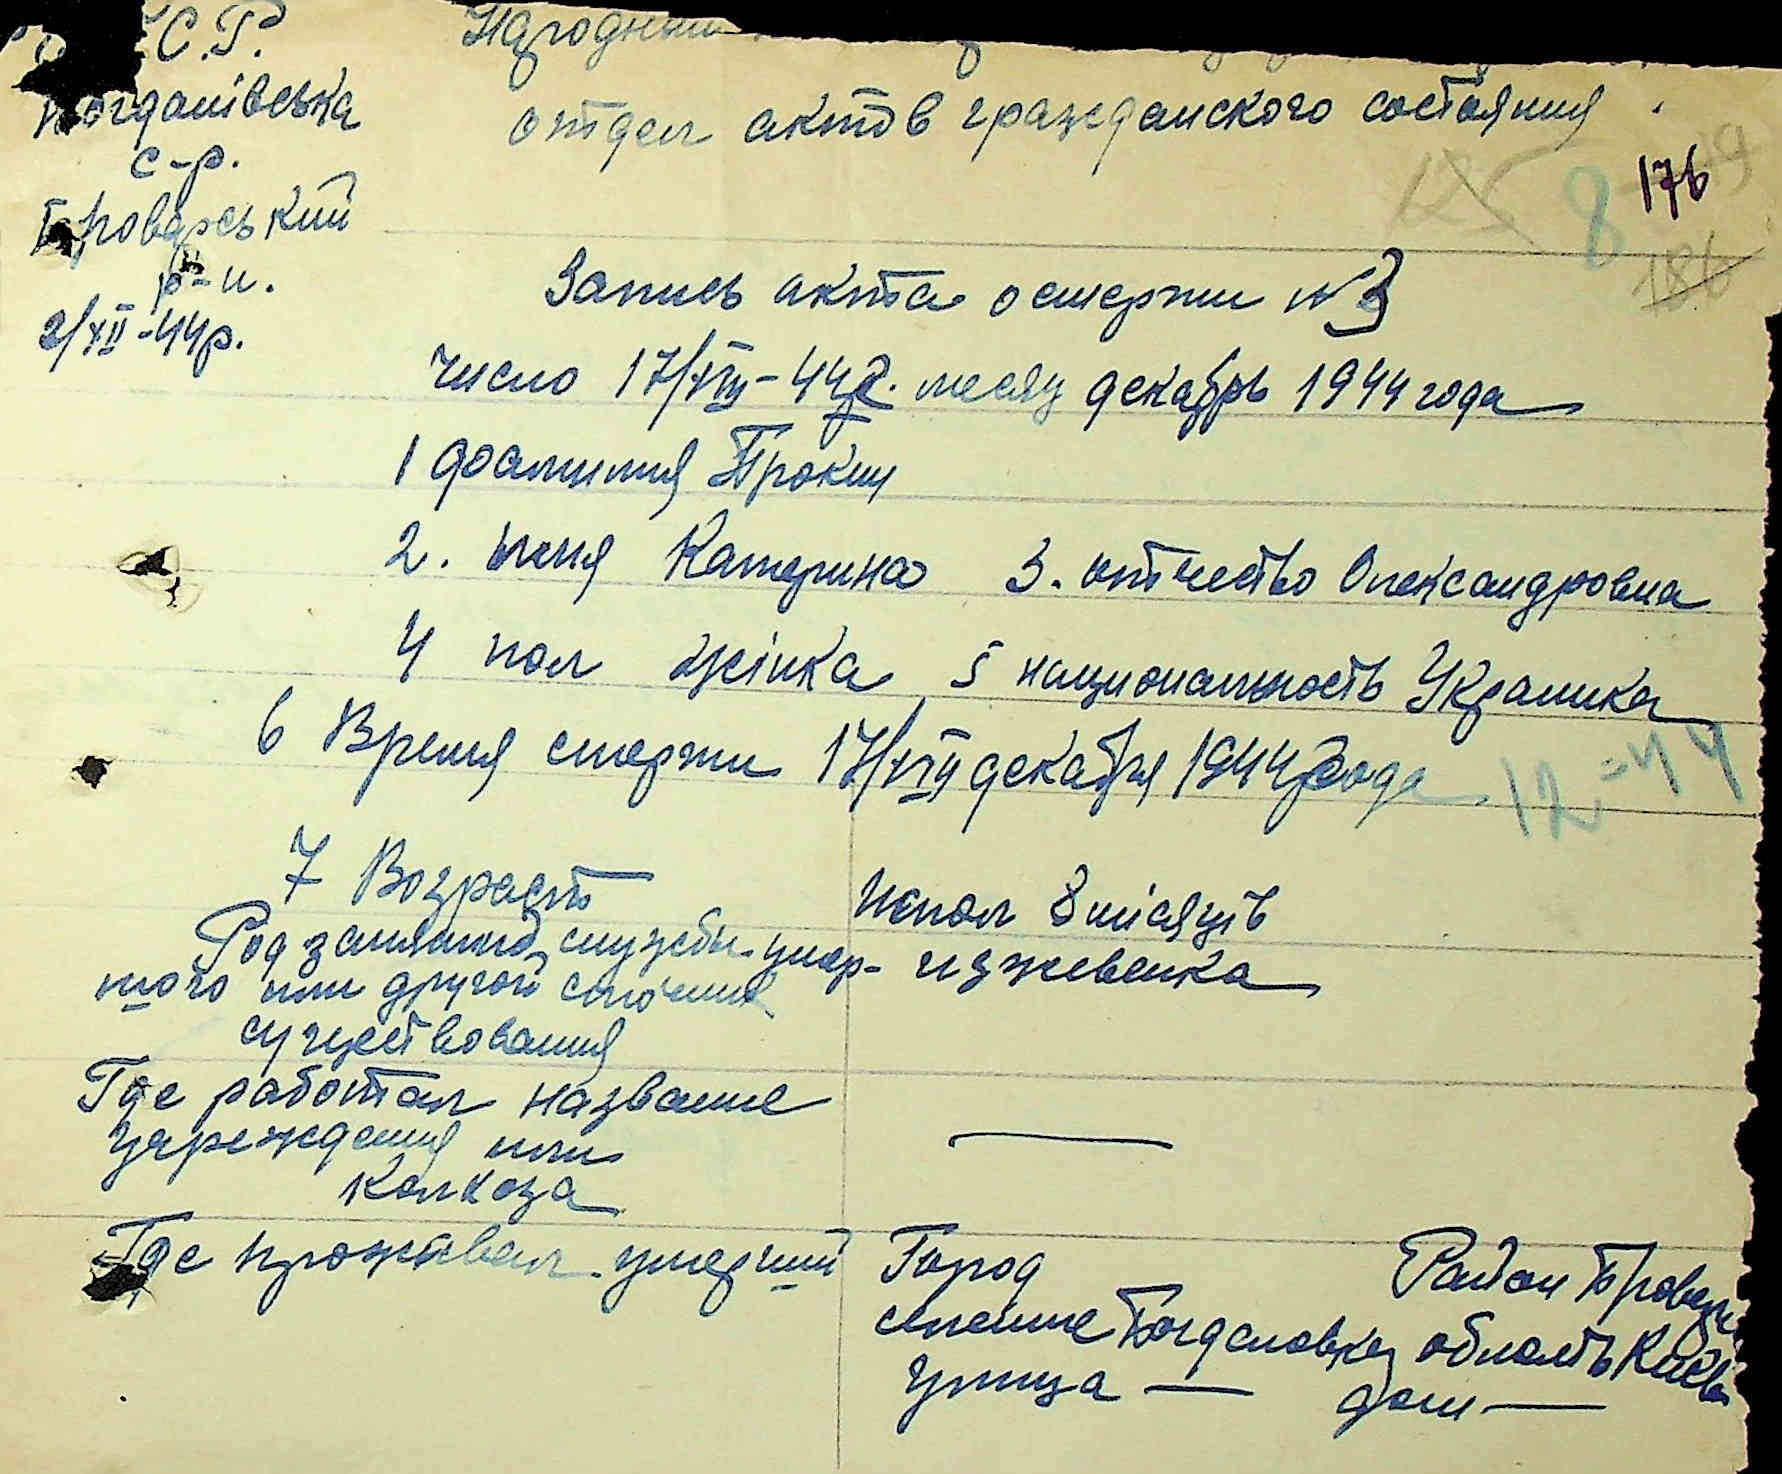 С.Р.
Народный
Богданівська
отдел актов гражданского состояния
с-р.
176
8
186
Броварський
р-н.
Запись акта о смерти № 3
2/XII-44р.
число 17/XII-44г. месяц декабрь 1944 года
1 фамилия Прокищ
2. имя Катерина 3. отчество Олександровна
4 пол жінка 5 национальность Украинка
6 Время смерти 17/XII декабря 1944 года
12-44
7 Возраст Испол 8 місяців
Род занятий, службы умер- изжевенка
шого или другой источник
существования
Где работал название
учреждения или —
колхоза
Где проживал умерший Город Район Бровар
селение Богдановка область Київ
улица — дом —